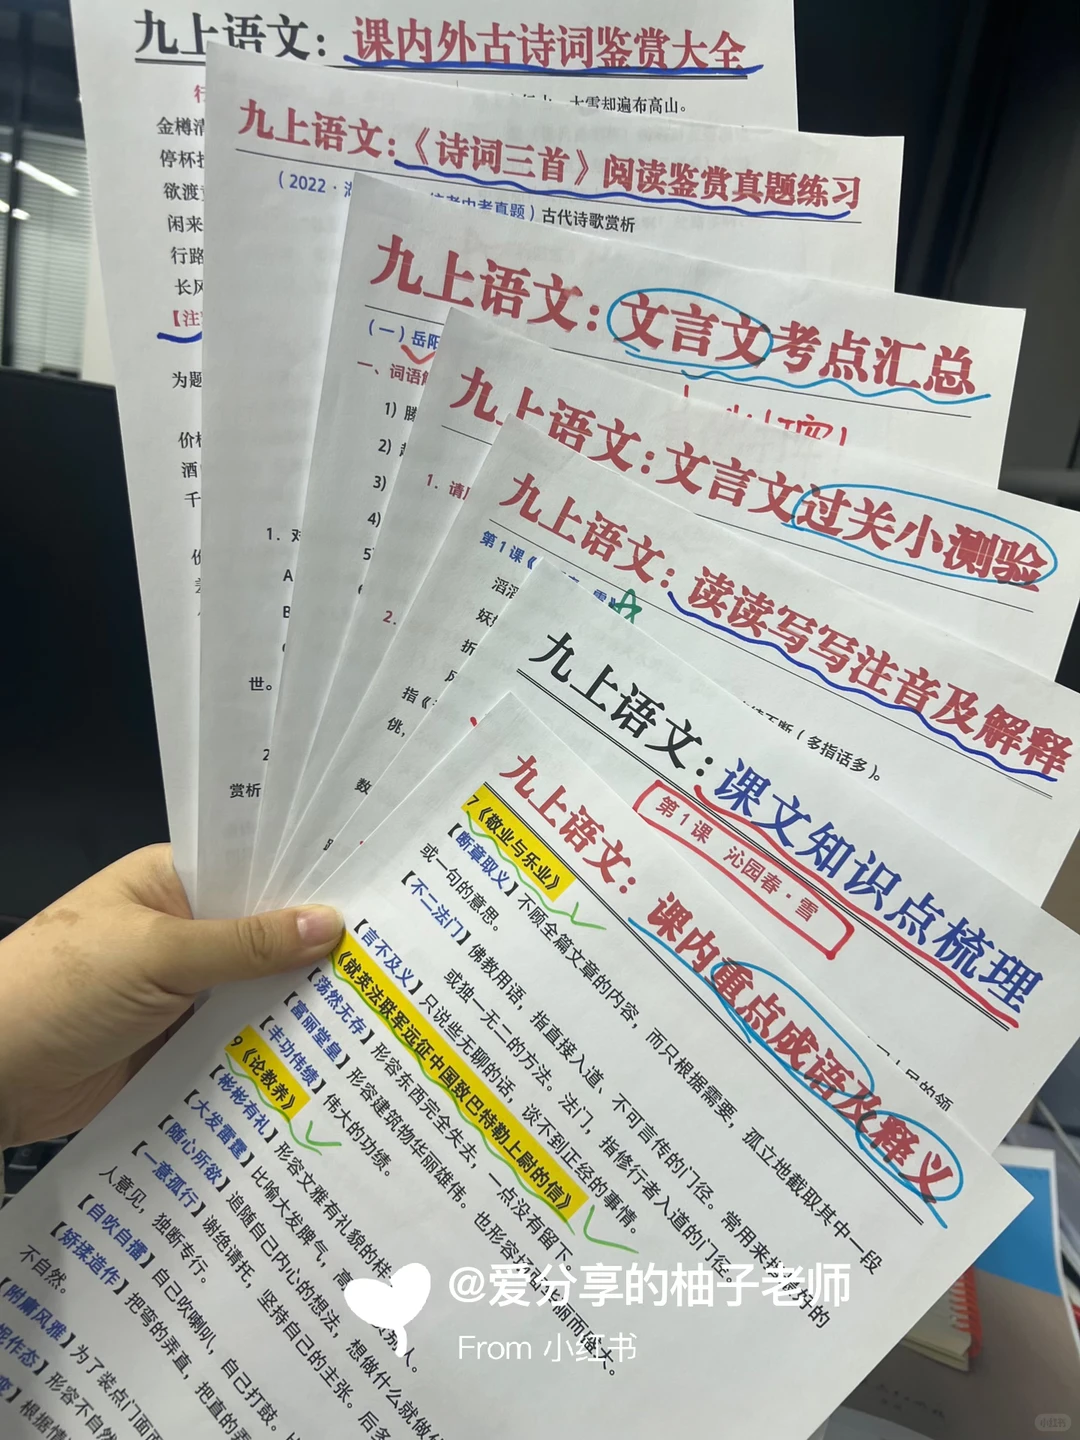 九上语文：课内外古诗词鉴赏大全
大雪却遍布高山。
金樽清
停杯投
欲渡
闲来
行路
长风
【注
为题
价格
酒
千
九上语文：《诗词三首》阅读鉴赏真题练习
（2022·
统考中考真题）古代诗歌赏析
1. 对
A
B
世。
2
赏析
九上语文：文言文考点汇总
（一）岳阳
一、词语解
1）腾
2）
3）
4）
5）
九上语文：文言文过关小测验
1. 请
2.
九上语文：读读写写注音及解释
第1课《
雪》
滔滔不断（多指话多）。
滔滔
妖娆
折
指《
佻，
数
九上语文：课文知识点梳理
第1课 沁园春·雪
九上语文：课内重点成语及释义
7《敬业与乐业》
【断章取义】不顾全篇文章的内容，而只根据需要，孤立地截取其中一段
或一句的意思。
【不二法门】佛教用语，指直接入道、不可言传的门径。常用来指最好的
或独一无二的方法。法门，指修行者入道的门径。
【言不及义】只说些无聊的话，谈不到正经的事情。
《就英法联军远征中国致巴特勒上尉的信》
【荡然无存】形容东西完全失去，一点没有留下。
【富丽堂皇】形容建筑物华丽雄伟。也形容场面华丽而盛大。
【丰功伟绩】伟大的功绩。
9《论教养》
【彬彬有礼】形容文雅有礼貌的样
【大发雷霆】比喻大发脾气，高
别人。
【随心所欲】追随自己内心的想法，想做什么就做什
【一意孤行】谢绝请托，坚持自己的主张。后多
人意见，独断专行。
【自吹自擂】自己吹喇叭，自己打鼓。
【矫揉造作】把弯的弄直，把直的弄
不自然。
【附庸风雅】为了装点门面
作态】形容不自然
】根据情
@爱分享的柚子老师
From 小红书
小红书